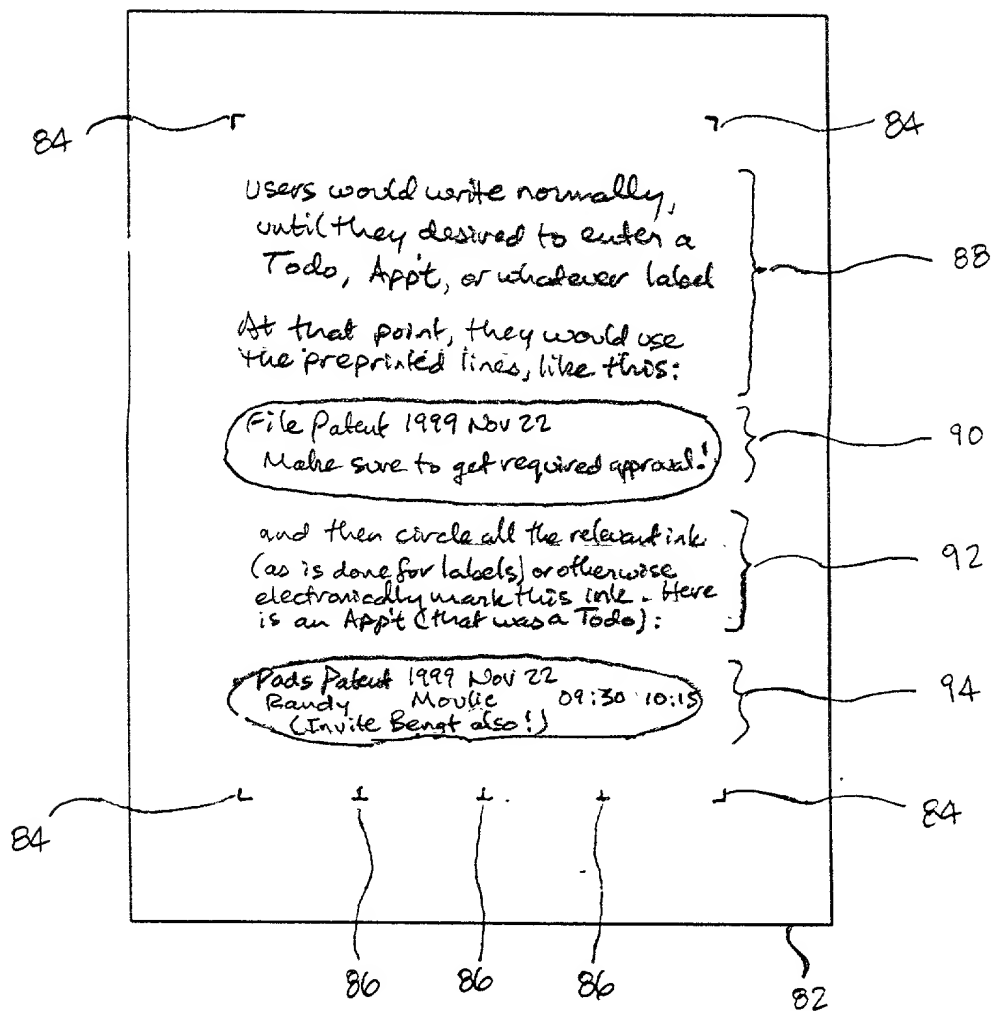 84
84
users would write normally,
until they desired to enter a
Todo, App't, or whatever label
88
At that point, they would use
the preprinted lines, like this:
File Patent 1999 Nov 22
Make sure to get required approval!
90
and then circle all the relevant ink
(as is done for labels) or otherwise
electronically mark this ink. Here
is an App't (that was a Todo):
92
Pads Patent 1999 Nov 22
Randy Movie 09:30 10:15
(Invite Bengt also!)
94
84
84
86
86
86
82